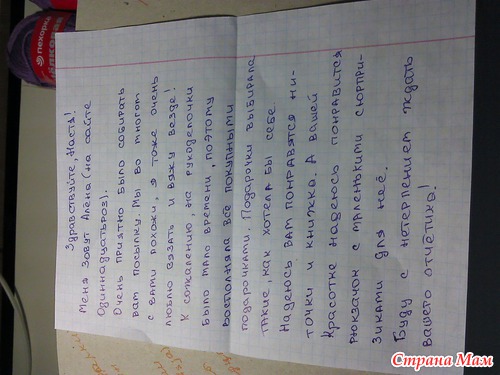 Здравствуйте, Настя!
Меня зовут Алёна (на сайте
Одиннадцатьроз).
Очень приятно было собирать
вам посылку. Мы во многом
с вами похожи, я тоже очень
люблю вязать и вяжу везде!
К сожалению, на рукоделочки
было мало времени, поэтому
восполняла всё покупными
подарочками. Подарочки выбирала
такие, как хотела бы себе.
Надеюсь вам понравятся ни-
точки и книжка. А вашей
красотке надеюсь понравится
рюкзачок с маленькими сюрпри-
зиками для неё.
Буду с нетерпением ждать
вашего отчётика!
пехорка
Страна Мам